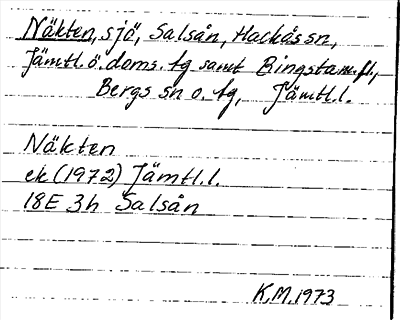 Näkten, sjö, Salsån, Hackås sn,
Jämtl. ö. doms. tg samt Bingsta m.fl.,
Bergs sn o. tg, Jämtl.l.
Näkten
ek (1972) Jämtl.l.
18E 3h Salsån
K.M. 1973